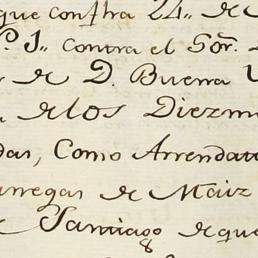 que consta 24,, de
º 1,, Contra el Sor.
de D. Buena V
de los Diezm
das, Como Arrendat
anegas de Maiz
Santiago de que